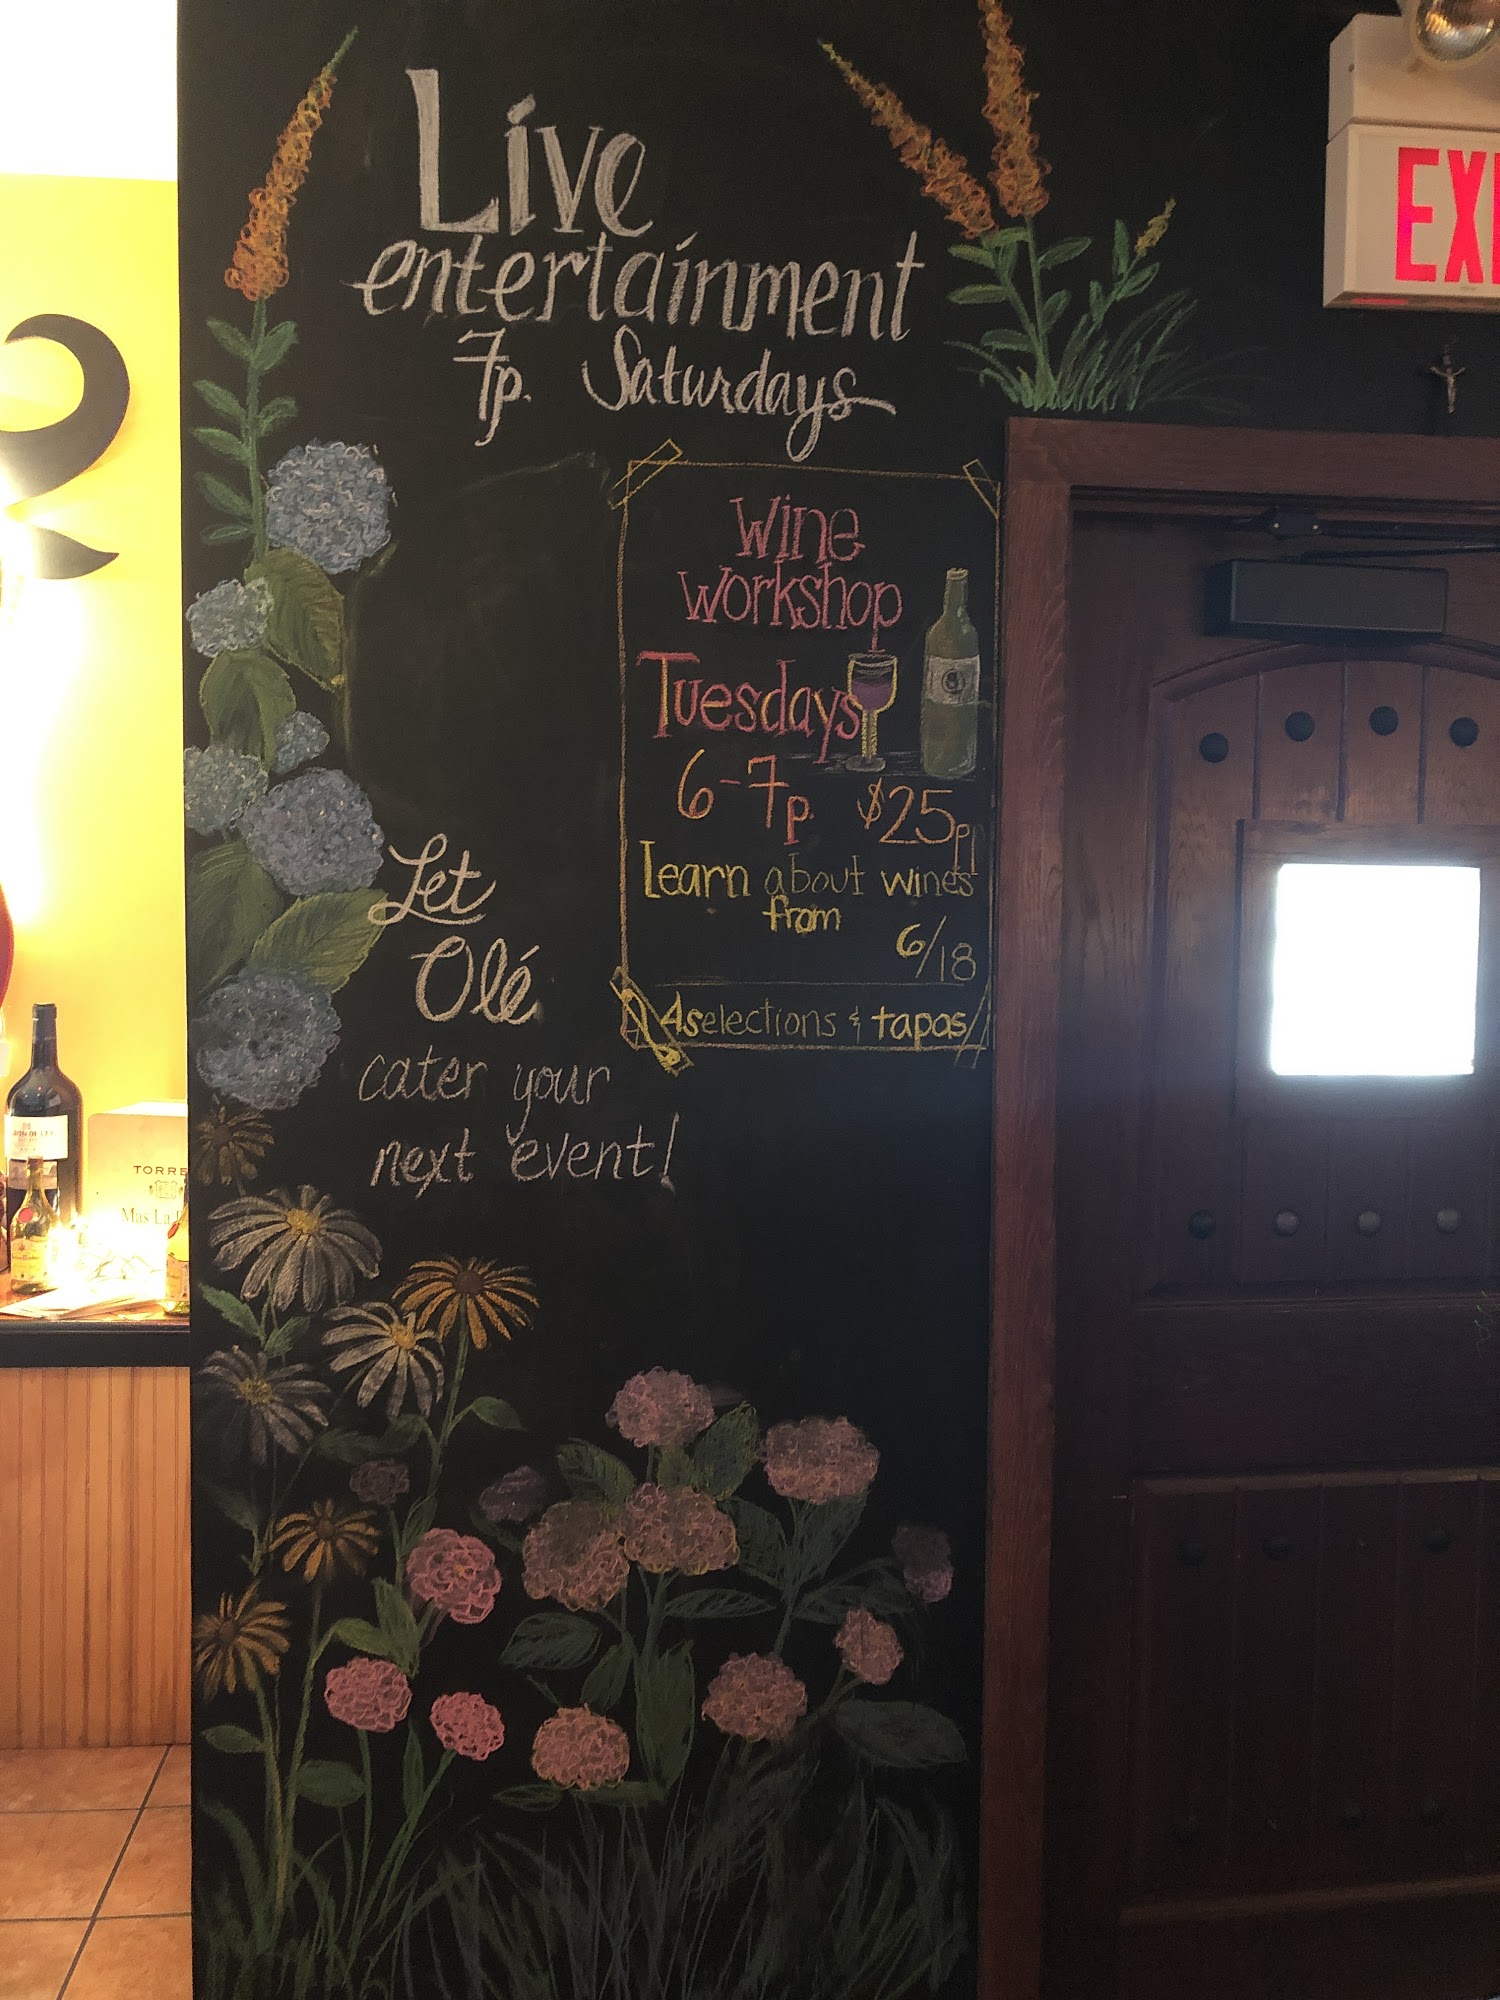 Live
entertainment
7p. Saturdays
EXI
Wine
workshop
Tuesdays
6-7p. $25pp
Learn about wines
from
6/18
4 selections & tapas
Let
Olé
cater your
next event!
TORRE
Mas La